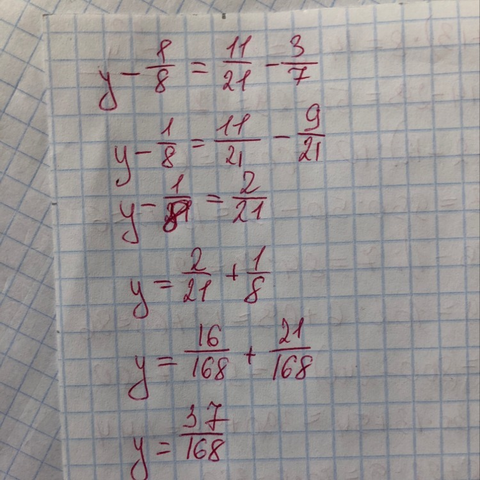 y - 1/8 = 11/21 - 3/7
y - 1/8 = 11/21 - 9/21
y - 1/8 = 2/21
y = 2/21 + 1/8
y = 16/168 + 21/168
y = 37/168